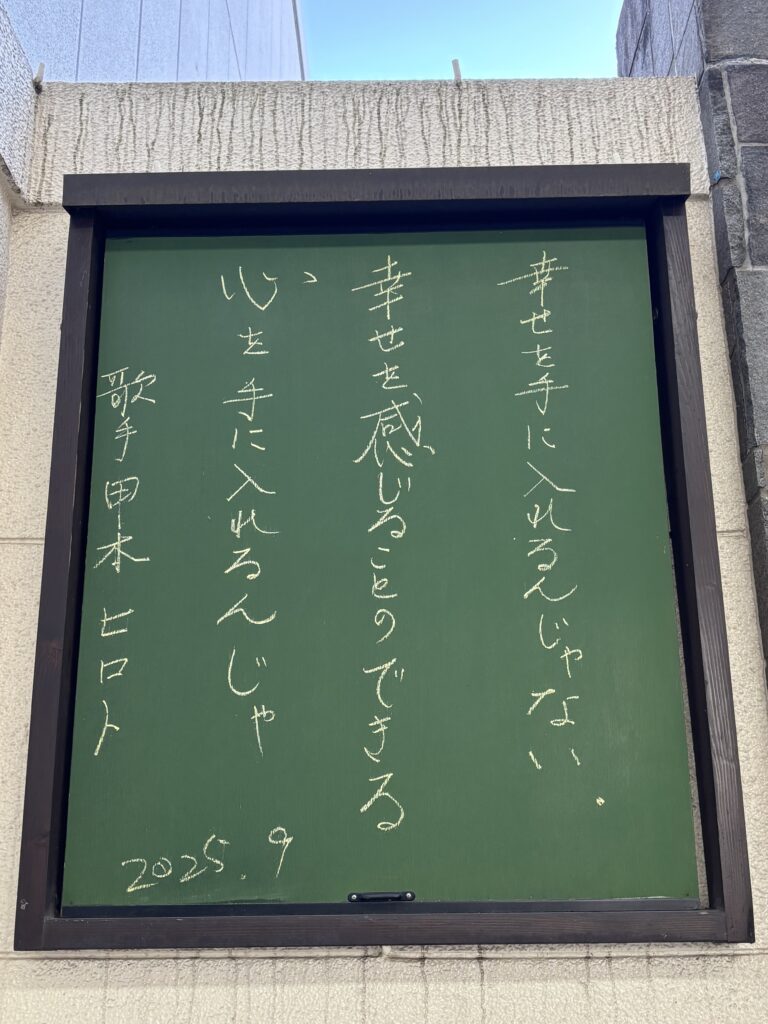 幸せを手に入れるんじゃない.
幸せを感じることのできる
心を手に入れるんじゃ
歌手 甲本 ヒロト
2025.9